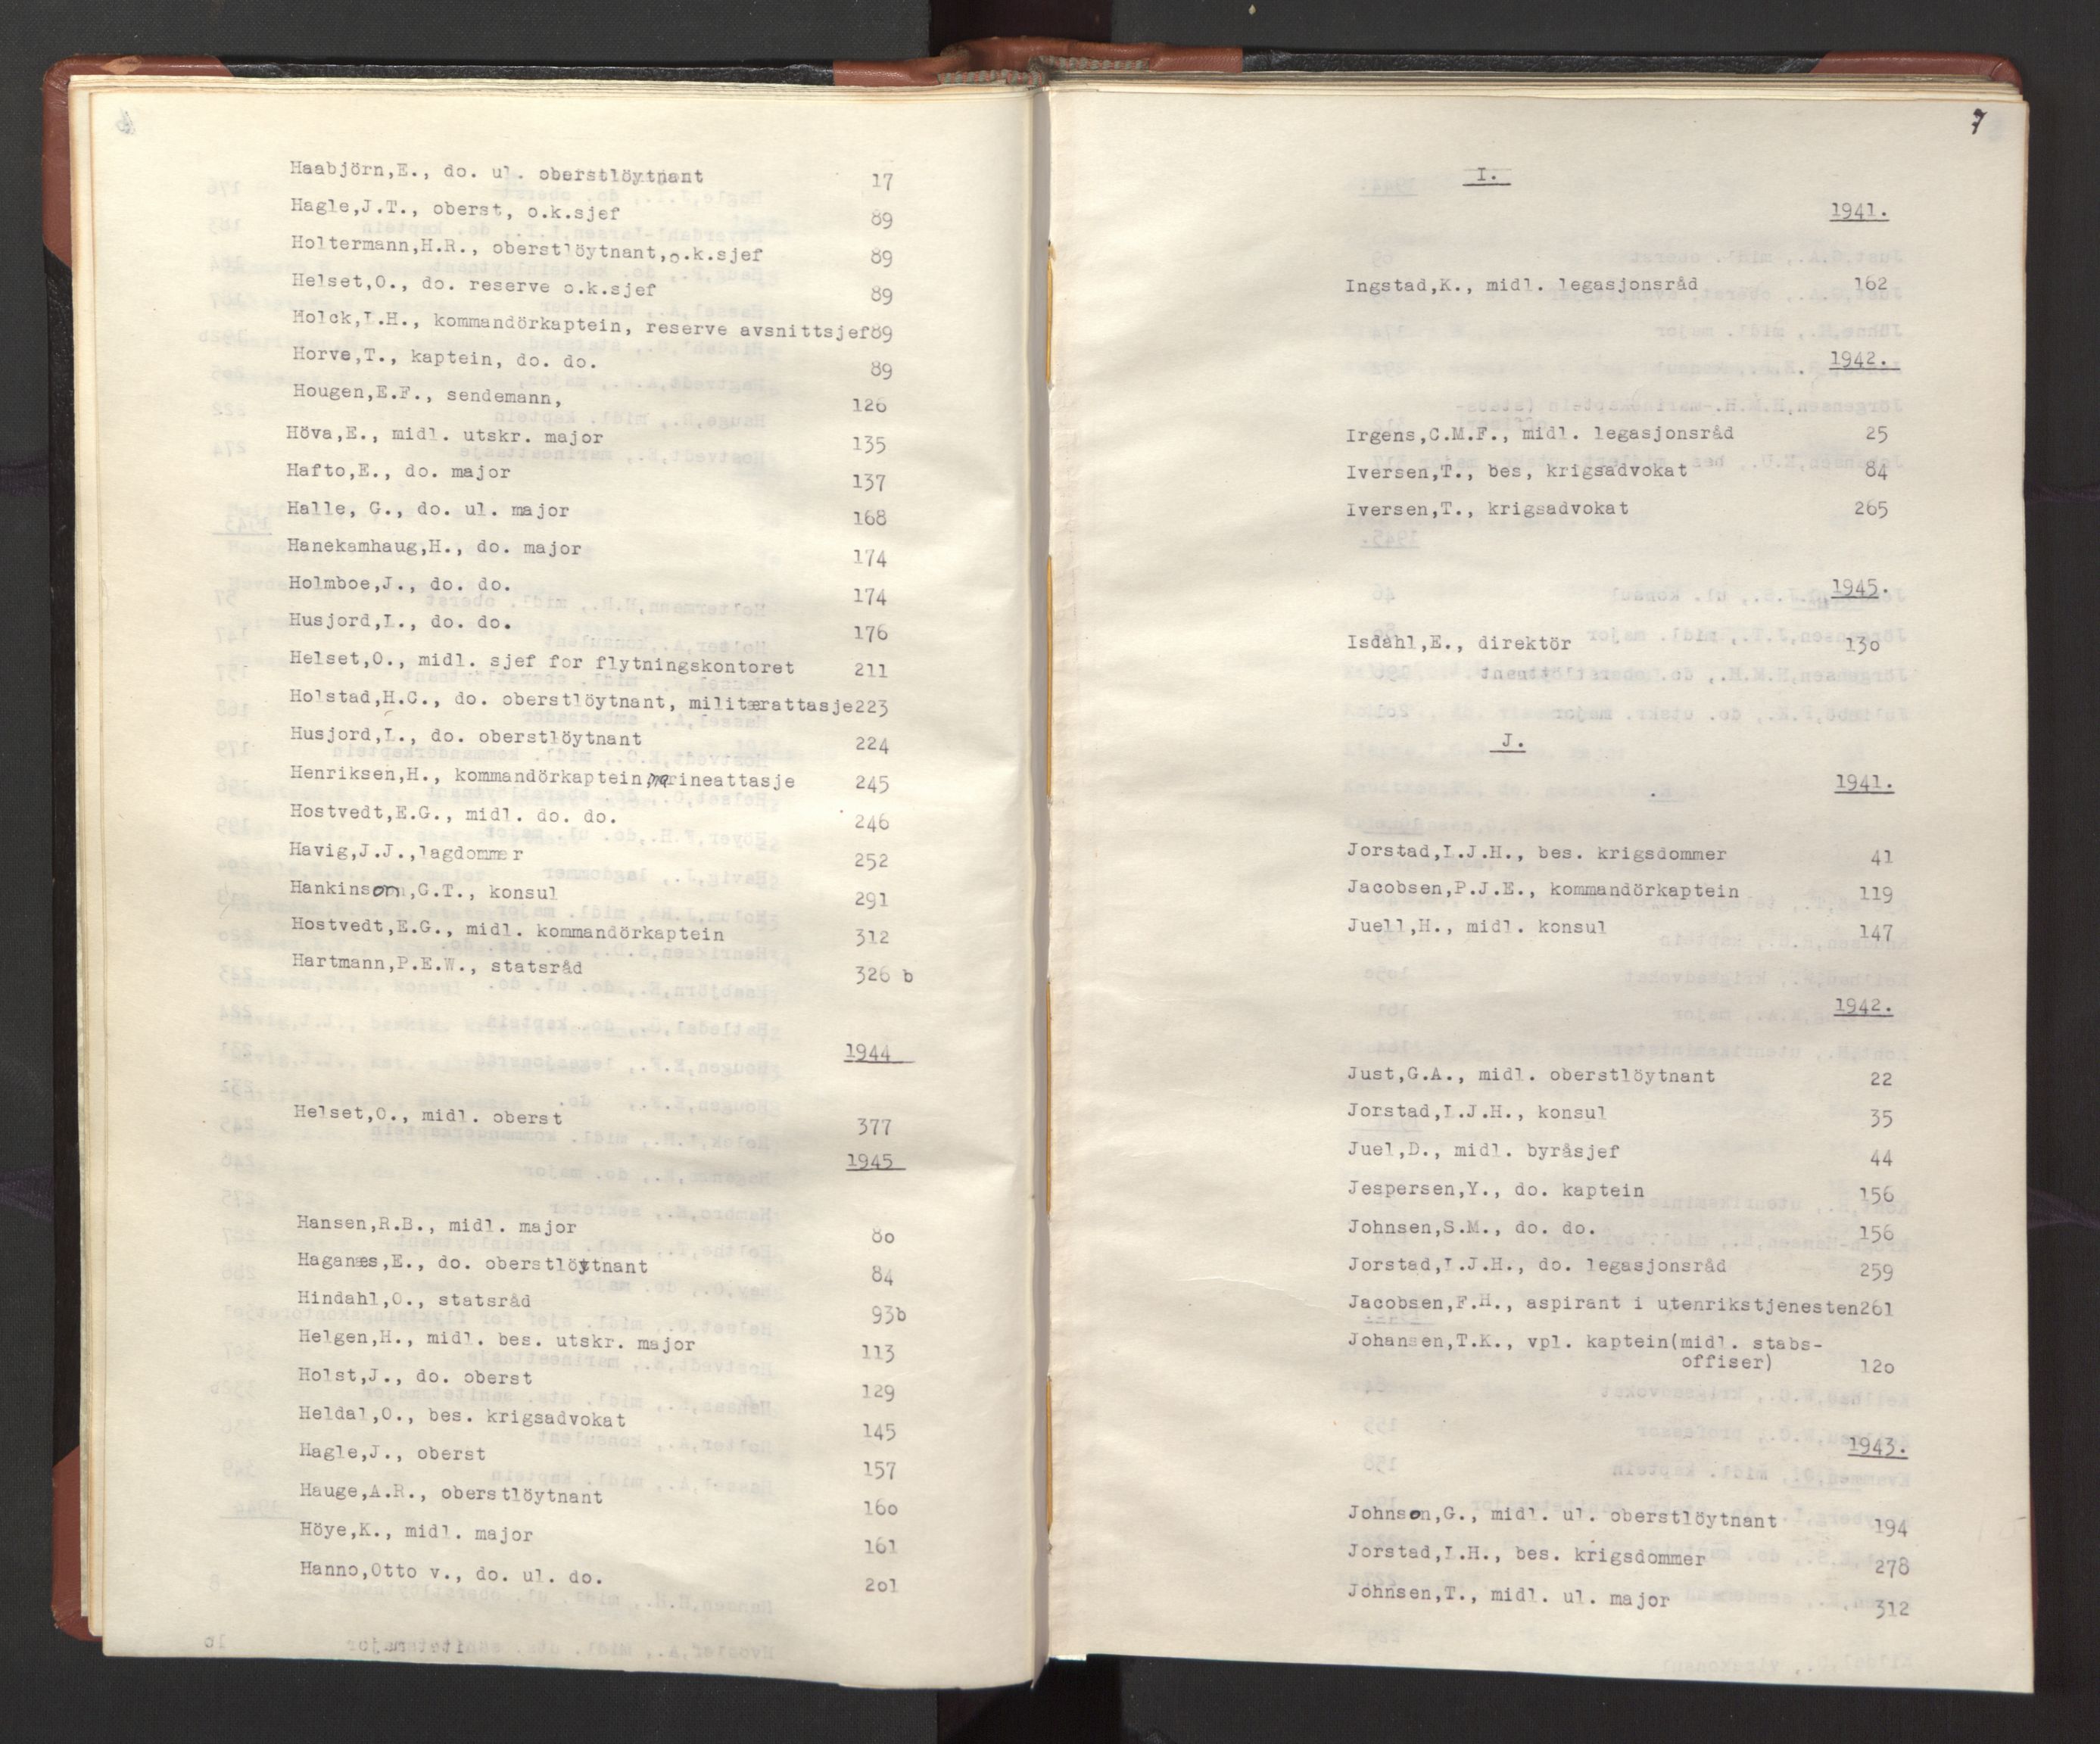 Haabjörn,E., do. ul. oberstlöytnant 17
Hagle,J.T., oberst, o.k.sjef 89
Holtermann,H.R., oberstlöytnant,o.k.sjef 89
Helset,O., do. reserve o.k.sjef 89
Holck,L.H., kommandörkaptein, reserve avsnittsjef89
Horve,T., kaptein, do. do. 89
Hougen,E.F., sendemann, 126
Höva,E., midl. utskr. major 135
Hafto,E., do. major 137
Halle, G., do. ul. major 168
Hanekamhaug,H., do. major 174
Holmboe,J., do. do. 174
Husjord,L., do. do. 176
Helset,O., midl. sjef for flytningskontoret 211
Holstad,H.C., do. oberstlöytnant, militærattasje223
Husjord,L., do. oberstlöytnant 224
Henriksen,H., kommandörkaptein,marineattasje 245
Hostvedt,E.G., midl. do. do. 246
Havig,J.J.,lagdommer 252
Hankinson,G.T., konsul 291
Hostvedt,E.G., midl. kommandörkaptein 312
Hartmann,P.E.W., statsråd 326 b
1944
Helset,O., midl. oberst 377
1945
Hansen,R.B., midl. major 8o
Haganæs,E., do. oberstlöytnant 84
Hindahl,O., statsråd 93b
Helgen,H., midl. bes. utskr. major 113
Holst,J., do. oberst 129
Heldal,O., bes. krigsadvokat 145
Hagle,J., oberst 157
Hauge,A.R., oberstlöytnant 16o
Höye,K., midl. major 161
Hanno,Otto v., do. ul. do. 2o1
7
I.
1941.
Ingstad,K., midl. legasjonsråd 162
1942.
Irgens,C.M.F., midl. legasjonsråd 25
Iversen,T., bes, krigsadvokat 84
Iversen,T., krigsadvokat 265
1945.
Isdahl,E., direktör 13o
J.
1941.
Jorstad,L.J.H., bes. krigsdommer 41
Jacobsen,P.J.E., kommandörkaptein 119
Juell,H., midl. konsul 147
1942.
Just,G.A., midl. oberstlöytnant 22
Jorstad,L.J.H., konsul 35
Juel,D., midl. byråsjef 44
Jespersen,Y., do. kaptein 156
Johnsen,S.M., do. do. 156
Jorstad,L.J.H., do. legasjonsråd 259
Jacobsen,F.H., aspirant i utenrikstjenesten261
Johansen,T.K., vpl. kaptein(midl. stabs-
offiser) 12o
1943.
Johnson,G., midl. ul. oberstlöytnant 194
Jorstad,L.H., bes. krigsdommer 278
Johnsen,T., midl. ul. major 312